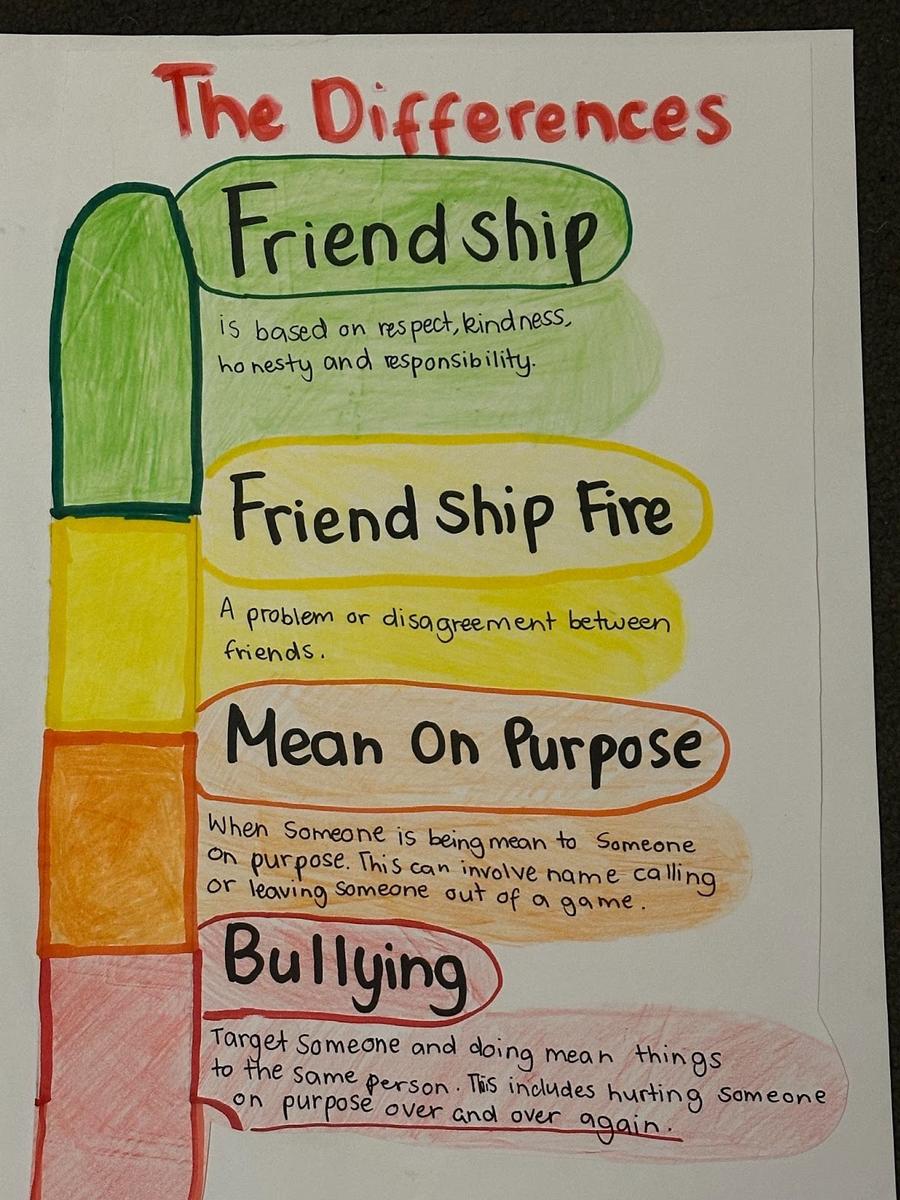 The Differences
Friendship
is based on respect, kindness,
honesty and responsibility.
Friendship Fire
A problem or disagreement between
friends.
Mean On Purpose
When someone is being mean to someone
on purpose. This can involve name calling
or leaving someone out of a game.
Bullying
Target someone and doing mean things
to the same person. This includes hurting someone
on purpose over and over again.